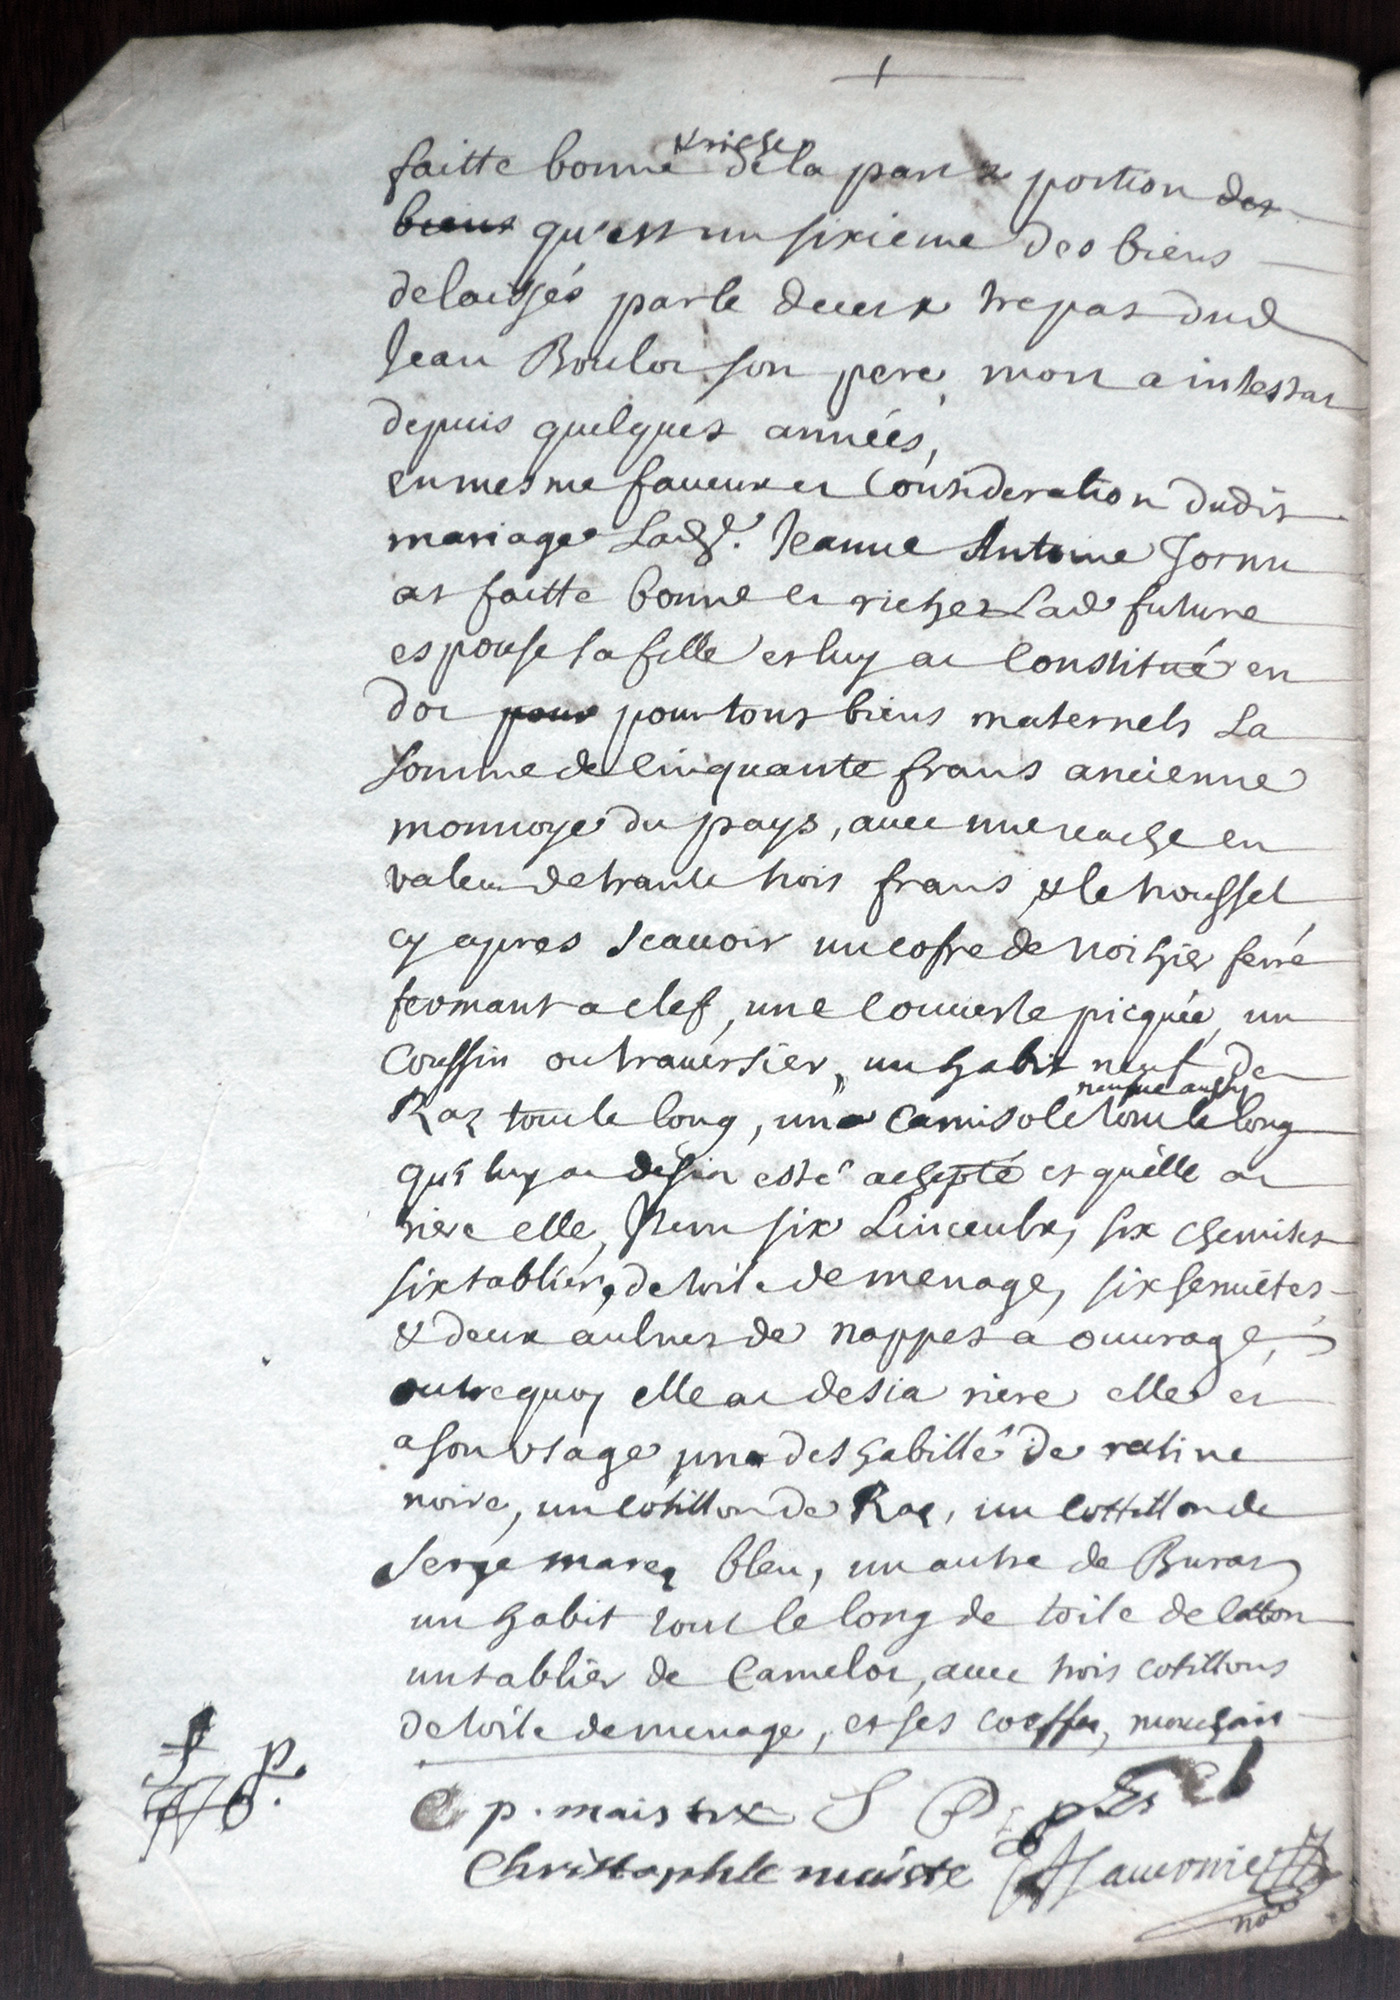 faitte bonne & riche de la part & portion des
biens qu'est un sixieme des biens
delaissés par le deces & trepas dud
Jean Boulot son pere, mort a intestat
depuis quelques années,
en mesme faueur et Consideration dudit
mariage Lad.e Jeanne Antoine Jornu
at faitte bonne et riche Lad future
espouse sa fille et luy at Constitué en
dot pour pour tous biens maternels La
somme de Cinquante frans ancienne
monnoye du pays, auec une vache en
valeur de trante trois frans, & le troussel
cy apres scauoir un cofre de noihier ferré
fermant a clef, une Couuerte picquée, un
Coussin ou trauersier, un habit neuf de
Raz tout le long, une Camisole neufue aussy tout le long
qui luy at desia esté achepté et quelle at
riere elle, Item six Linceulx, six chemises
six tabliers de toile de menage, six seruietes
& deux aulnes de nappes a ouurage,
outre quoy elle at desia riere elle et
a son usage une deshabillé de ratine
noire, un cotillon de Raz, un cottillon de
Serge bleu, un autre de Burat
un habit tout le long de toile de Cotton
un tablier de Camelot, auec trois cotillons
de toile de menage, et ses coeffes, mouchoirs
p. maistre
Christophle maiste